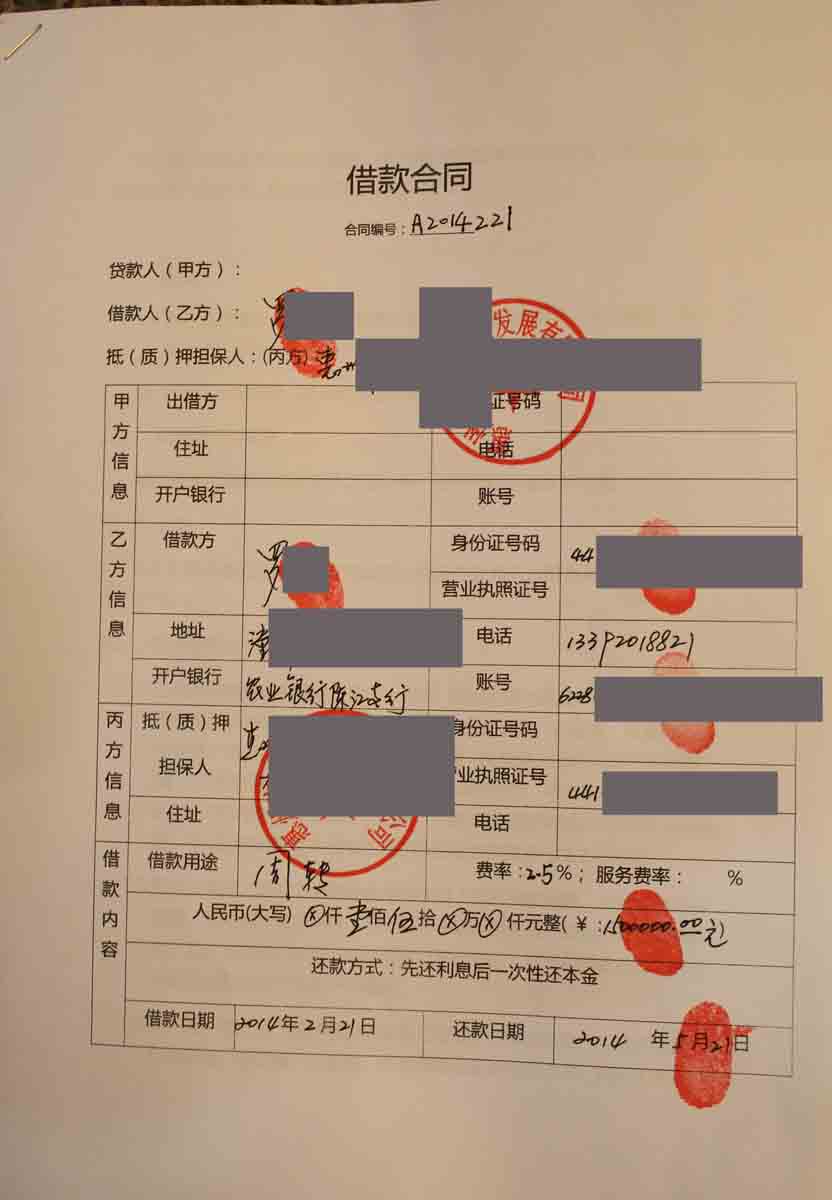 借款合同
合同编号：A2014221
贷款人（甲方）：
借款人（乙方）：罗
抵（质）押担保人：(丙方) 惠州
发展有
甲方信息
出借方 证号码
住址 电话
开户银行 账号
乙方信息
借款方 罗 身份证号码 44
营业执照证号
地址 潼 电话 13392018821
开户银行 农业银行陈江支行 账号 6228
丙方信息
抵（质）押担保人 身份证号码
营业执照证号 441
住址 电话
借款内容
借款用途 周转 费率：2.5%；服务费率： %
人民币(大写) ⊗仟壹佰伍拾⊗万⊗仟元整(￥:1500000.00元)
还款方式：先还利息后一次性还本金
借款日期 2014年2月21日 还款日期 2014 年5月21日